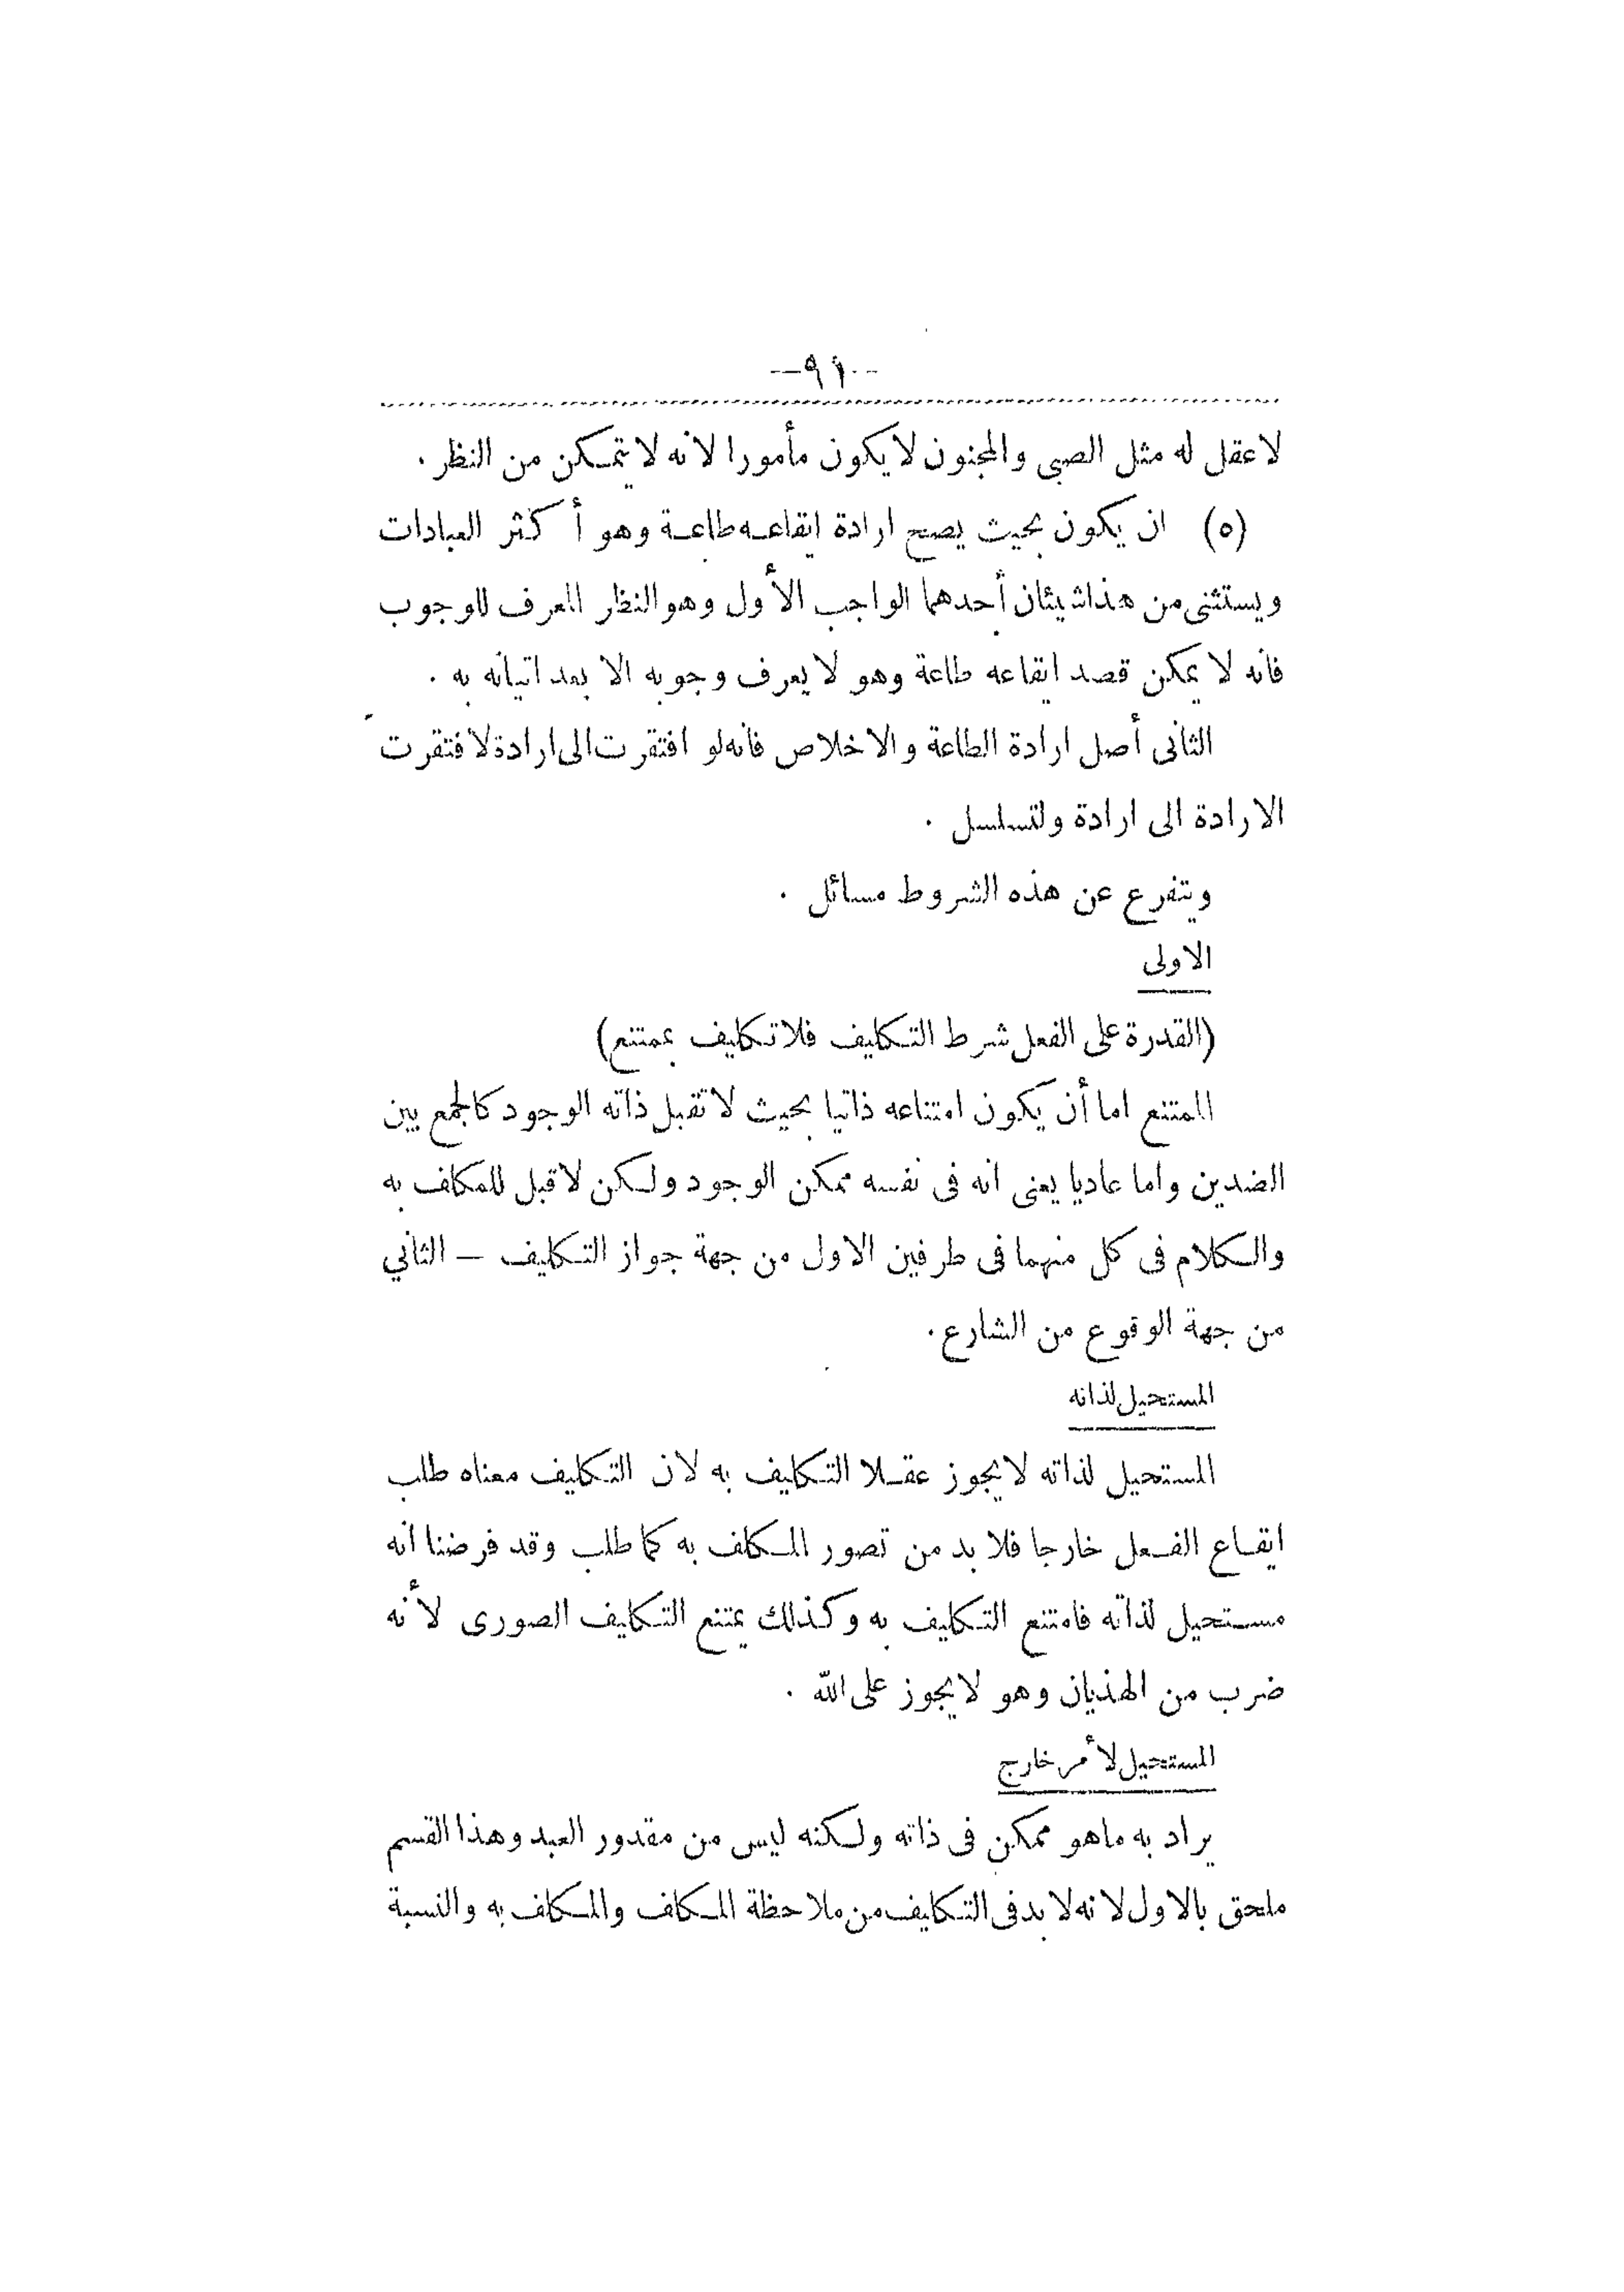 --٩١--
لا عقل له مثل الصبى والمجنون لا يكون مأمورا لانه لا يتمكن من النظر .
(٥) ان يكون بحيث يصح ارادة ايقاعه طاعة وهو أكثر العبادات
ويستثنى من هذا شيئان أحدهما الواجب الأول وهو النظر المعرف للوجوب
فانه لا يمكن قصد ايقاعه طاعة وهو لا يعرف وجوبه الا بعد اتيانه به .
الثانى أصل ارادة الطاعة والاخلاص فانه لو افتقرت الى ارادة لافتقرت
الارادة الى ارادة ولتسلسل .
ويتفرع عن هذه الشروط مسائل .
الاولى
(القدرة على الفعل شرط التكليف فلا تكليف بممتنع)
الممتنع اما أن يكون امتناعه ذاتيا بحيث لا تقبل ذاته الوجود كالجمع بين
الضدين واما عاديا يعنى انه فى نفسه ممكن الوجود ولكن لا قبل للمكلف به
والكلام فى كل منهما فى طرفين الاول من جهة جواز التكليف — الثاني
من جهة الوقوع من الشارع.
المستحيل لذاته
المستحيل لذاته لا يجوز عقلا التكليف به لان التكليف معناه طلب
ايقاع الفعل خارجا فلا بد من تصور المكلف به كما طلب وقد فرضنا انه
مستحيل لذاته فامتنع التكليف به وكذلك يمتنع التكليف الصورى لأنه
ضرب من الهذيان وهو لا يجوز على الله .
المستحيل لأمر خارج
يراد به ما هو ممكن فى ذاته ولكنه ليس من مقدور العبد وهذا القسم
ملحق بالاول لانه لا بد فى التكليف من ملاحظة المكلف والمكلف به والنسبة